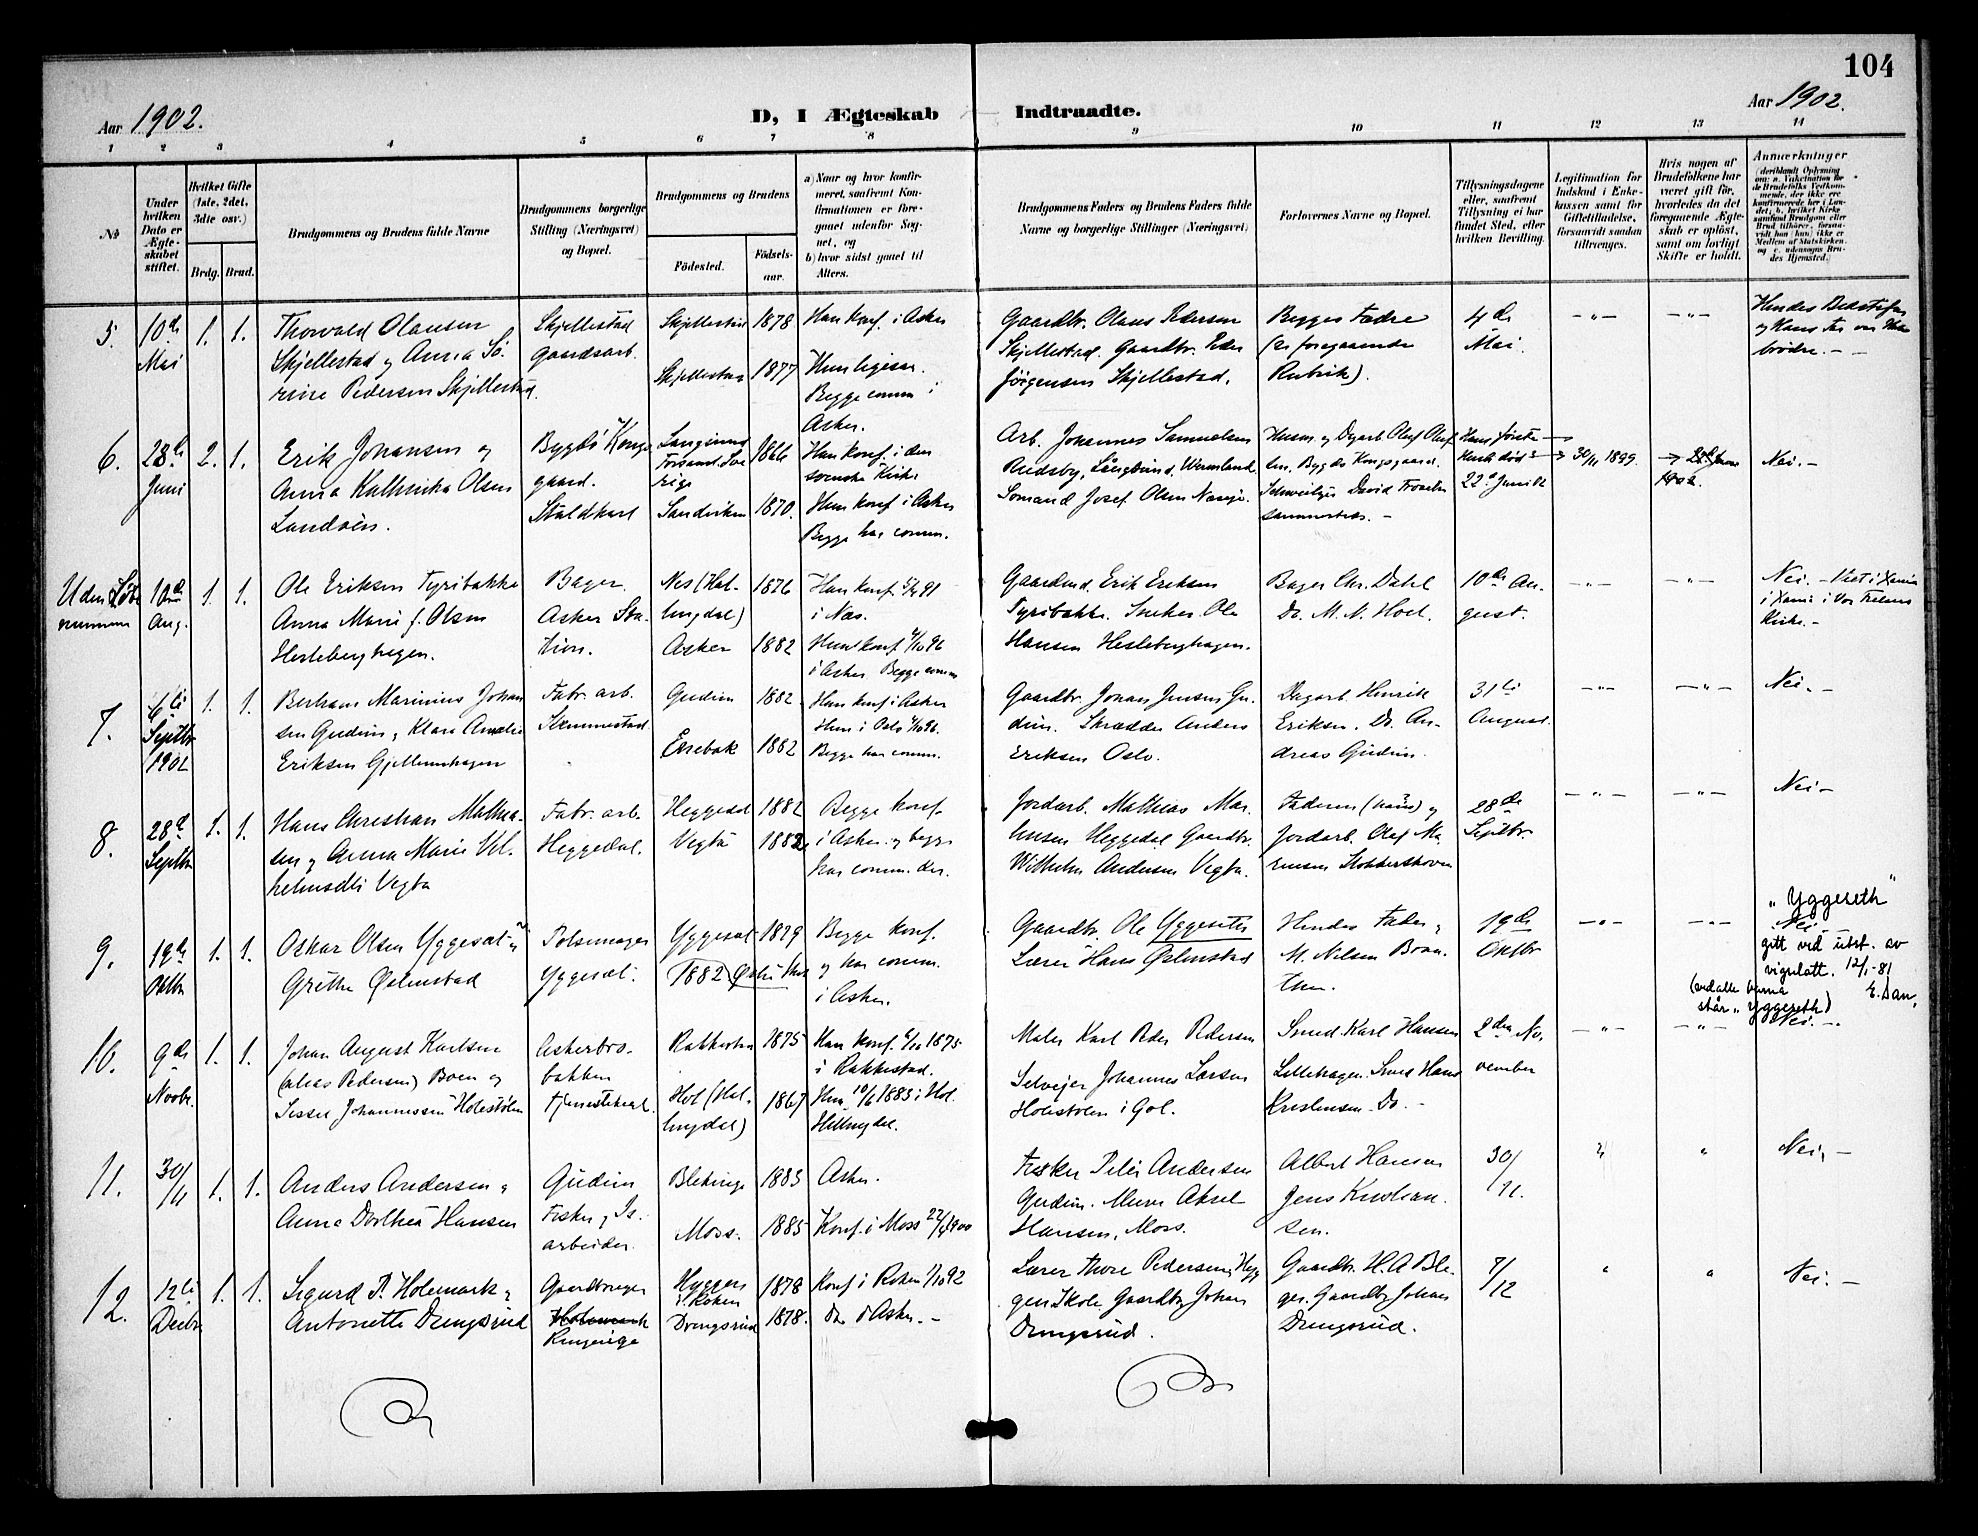 104
Aar 1902.
D, I Ægteskab Indtraadte.
Aar 1902.
1 2 3 4 5 6 7 8 9 10 11 12 13 14
No
Under hvilken Dato er Ægteskabet stiftet.
Hvilket Gifte (1ste, 2det, 3die osv.)
Brdg. Brud.
Brudgommens og Brudens fulde Navne
Brudgommens borgerlige Stilling (Næringsvei) og Bopæl.
Brudgommens og Brudens
Fødested. Fødselsaar.
a) Naar og hvor konfirmeret, saafremt Konfirmationen er foregaaet udenfor Sognet, og
b) hvor sidst gaaet til Alters.
Brudgommens Faders og Brudens Faders fulde Navne og borgerlige Stillinger (Næringsvei)
Forlovernes Navne og Bopæl.
Tillysningsdagene eller, saafremt Tillysning ei har fundet Sted, efter hvilken Bevilling.
Legitimation for Indskud i Enkekassen samt for Giftetilladelse, forsaavidt saadan tiltrænges.
Hvis nogen af Brudefolkene har været gift før, hvorledes da det foregaaende Ægteskab er opløst, samt om lovligt Skifte er holdt.
Anmærkninger
5. 10de Mai 1. 1.
Thorvald Olausen
Skjellestad og Anna Sø-
rine Pedersen Skjellestad.
Skjellestad
Gaardsarb.
Skjellestad 1878
Skjellestad 1877
Han konf. i Asker
Hun ligesaa.
Begge comm. i
Asker.
Gaardbr. Olaus Pedersen
Skjellestad. Gaardbr. Peder
Jörgensen Skjellestad.
Begges Fædre
(se foregaaende
Rubrik).
4de
Mai.
-"- -"-
Hendes Bedstefar
og Hans Far var
brødre. -
6. 28de Juni 2. 1.
Erik Johansen og
Anna Kathinka Olsen
Landøen.
Bygdö Kongs-
gaard.
Staldkarl
1866
1870.
Han konf. i den
svenske Kirke
Hun konf. i Asker
Begge har comm.
Arb. Johannes Samuelsen
Rudsby, Långserud, Wermland.
Sömand Josef Olsen Næsøje.
Husm. og Dagarb. Oluf Oluf-
sen, Bygdö Kongsgaard.
22de Juni 02
30/11 1899.
Nei. -
Uden Løbe
nummer
10de Aug. 1. 1.
Ole Eriksen Tyribakke
Anna Marie f. Olsen
Hesleberghagen.
Bager
Asker Sta-
tion.
Nes (Hal-
lingdal) 1876
Asker 1882
Han konf. 91
i Nes.
Hun konf. 4/10 96
i Asker. Begge comm
Gaardmd. Erik Eriksen
Tyribakke. Snekker Ole
Hansen Hesleberghagen.
Bager Chr. Dahl
Do. M. N. Hoel.
10de Au-
gust.
-"- -"-
Nei. - Viet i Xania
i Xania i Vor Frelsers
Kirke. -
7. 6te Septbr 1902 1. 1.
Berhans Marinius Johan-
sen Gudim, Klara Amalie
Eriksen Gjellumhagen
Fabr. arb.
Gudim 1882
Enebak 1882
Han konf. i Asker
Hun i Oslo 4/10 96.
Begge har comm.
Gaardbr. Johan Jensen Gu-
dim. Skrædder Anders
Eriksen Oslo.
Dagarb. Henrik
Eriksen. Do. An-
dreas Gudim.
31te
August.
-"- -"-
Nei. -
8. 28de Septbr 1. 1.
Hans Christian Mathia-
sen og Anna Marie Vil-
helmsdtr Vegba
Fabr. arb.
Heggedal.
Heggedal 1882
Vegba 1882
Begge konf.
i Asker og begge
har comm. der.
Jordarb. Mathias Mar-
tinsen Heggedal Gaardbr.
Wilhelm Andersen Vegba.
Faderen (hans) og
Jordarb. Olaf Ma-
28de
Septbr.
-"- -"-
Nei -
9. 19de Oktbr 1. 1.
Oskar Olsen Yggeset og
Grethe Gelmstad
Pølsemager
Yggeset.
Yggeset 1879
1882
Begge konf.
og har comm.
i Asker.
Gaardbr. Ole Yggeseter
Lærer Hans Gelmstad
Hendes Fader,
M. Nilsen Braa-
then.
19de
Oktbr
-"- -"-
"Yggeseth"
Nei -
gitt ved utst. av
vigselatt. 12/1-81
(ved alle barna E. Dan.
står "Yggeseth)
10. 9de Novbr. 1. 1.
Johan August Karlsen
(alias Pedersen) Boen og
Sissel Johannessen Holestølen
Askerbro-
bakken
Tjenestekarl.
Rakkestad 1875
Hol (Hal-
lingdal) 1867
Han konf. 1875
i Rakkestad.
Hun 10/6 1883 i Hol.
Hallingdal.
Maler Karl Peder Pedersen
Selveier Johannes Larsen
Holestølen i Gol.
Smed Karl Hansen
Lillehagen. Smed Hans
Kristensen. Do. -
2den No-
vember
-"- -"-
Nei. -
11. 30/11 1. 1.
Anders Andersen og
Anna Dorthea Hansen
Gudim
Fisker og Is-
arbeider.
Blekinge 1883
Moss. 1885
Asker.
Konf. i Moss 22/4 1900
Fisker Peter Andersen
Gudim. Murer Aksel
Hansen, Moss.
Albert Hansen
Jens Kristian-
sen.
30/11.
" "
Nei. -
12. 12te Decbr 1. 1.
Sigurd P. Holemark og
Antonette Drengsrud
Gaardbruger
Holemark
Ringerige
Hyggen
i Røken 1878
Drengsrud 1878.
Konf. i Røken 1/10 92
Do i Asker. -
Lærer Thore Pedersen, Hyg-
gen Skole. Gaardbr. Johan
Drengsrud.
Gaardbr. H. A. Ble-
ger. Gaardbr. Johan
Drengsrud.
7/12
" "
Nei. -